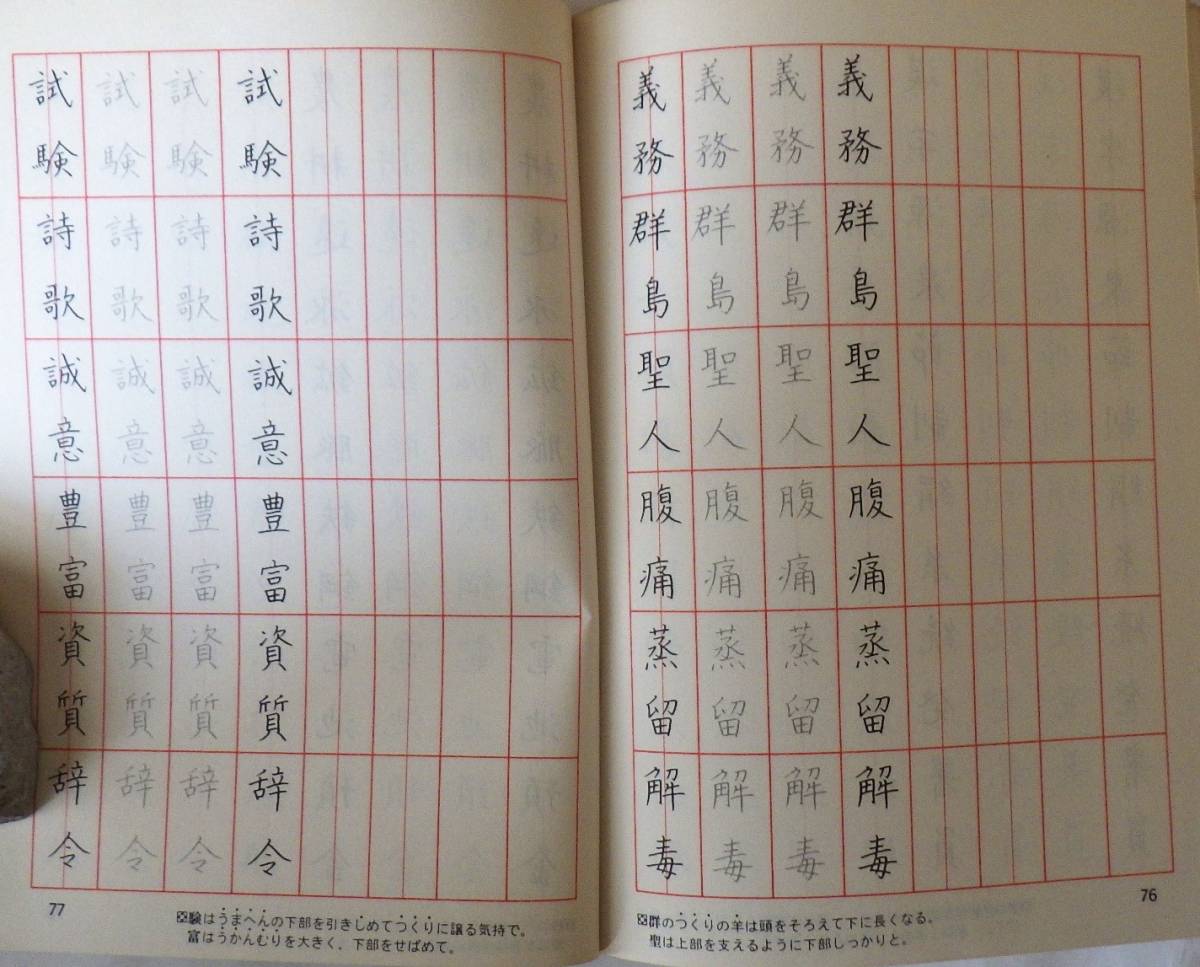 義務群島聖人腹痛蒸留解毒
義務群島聖人腹痛蒸留解毒
義務群島聖人腹痛蒸留解毒
義務群島聖人腹痛蒸留解毒
※群のつくりの羊は頭をそろえて下に長くなる。
聖は上部を支えるように下部しっかりと。
76
試験詩歌誠意豊富資質辞令
試験詩歌誠意豊富資質辞令
試験詩歌誠意豊富資質辞令
試験詩歌誠意豊富資質辞令
77
※験はうまへんの下部を引きしめてつくりに譲る気持で。
富はうかんむりを大きく、下部をせばめて。